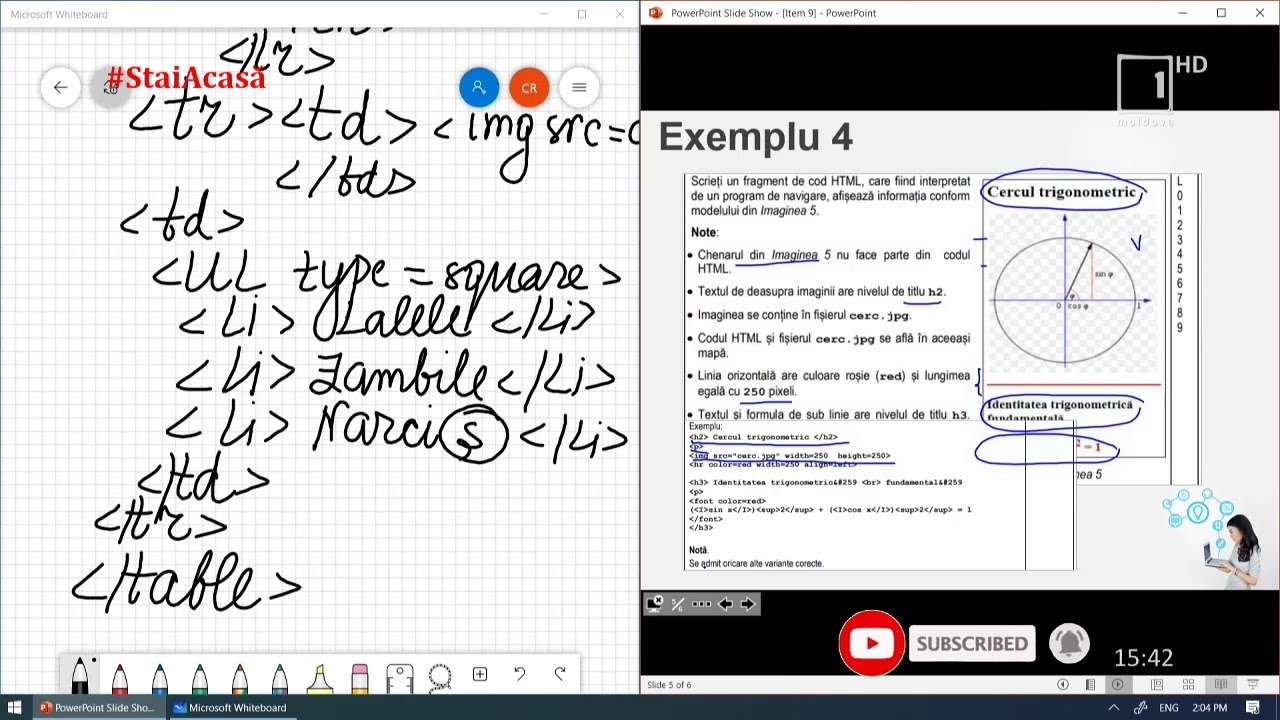 Microsoft Whiteboard
</tr>
#StaiAcasă
CR
<tr><td> <img src=
</td>
<td>
<UL type = square>
<Li> Lalele </Li>
<Li> Zambile </Li>
<Li> Narcis </Li>
</td>
</tr>
</table>
PowerPoint Slide Show - [Item 9] - PowerPoint
1 HD
moldova
Exemplu 4
Scrieți un fragment de cod HTML, care fiind interpretat
de un program de navigare, afișează informația conform
modelului din Imaginea 5.
Note:
• Chenarul din Imaginea 5 nu face parte din codul
HTML.
• Textul de deasupra imaginii are nivelul de titlu h2.
• Imaginea se conține în fișierul cerc.jpg.
• Codul HTML și fișierul cerc.jpg se află în aceeași
mapă.
• Linia orizontală are culoare roșie (red) și lungimea
egală cu 250 pixeli.
• Textul si formula de sub linie are nivelul de titlu h3.
Cercul trigonometric
V
sin φ
φ
0 cos φ 1
Identitatea trigonometrică
fundamentală
2 = 1
nea 5
L
0
1
2
3
4
5
6
7
8
9
Exemplu:
<h2> Cercul trigonometric </h2>
<p>
<img src="cerc.jpg" width=250 height=250>
<hr color=red width=250 align=left>
<h3> Identitatea trigonometric&#259 <br> fundamental&#259
<p>
<font color=red>
(<I>sin x</I>)<sup>2</sup> + (<I>cos x</I>)<sup>2</sup> = 1
</font>
</h3>
Notă.
Se admit oricare alte variante corecte.
SUBSCRIBED
15:42
Slide 5 of 6
PowerPoint Slide Sho...
Microsoft Whiteboard
ENG
2:04 PM